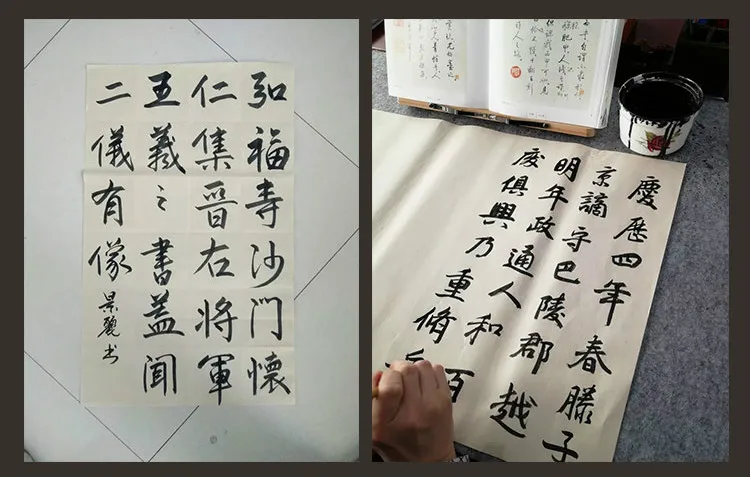 弘福寺沙門懷
仁集晉右將軍
王羲之書蓋聞
二儀有像
景麗书
慶歷四年春滕子
京謫守巴陵郡越
明年政通人和百
廢俱興乃重脩